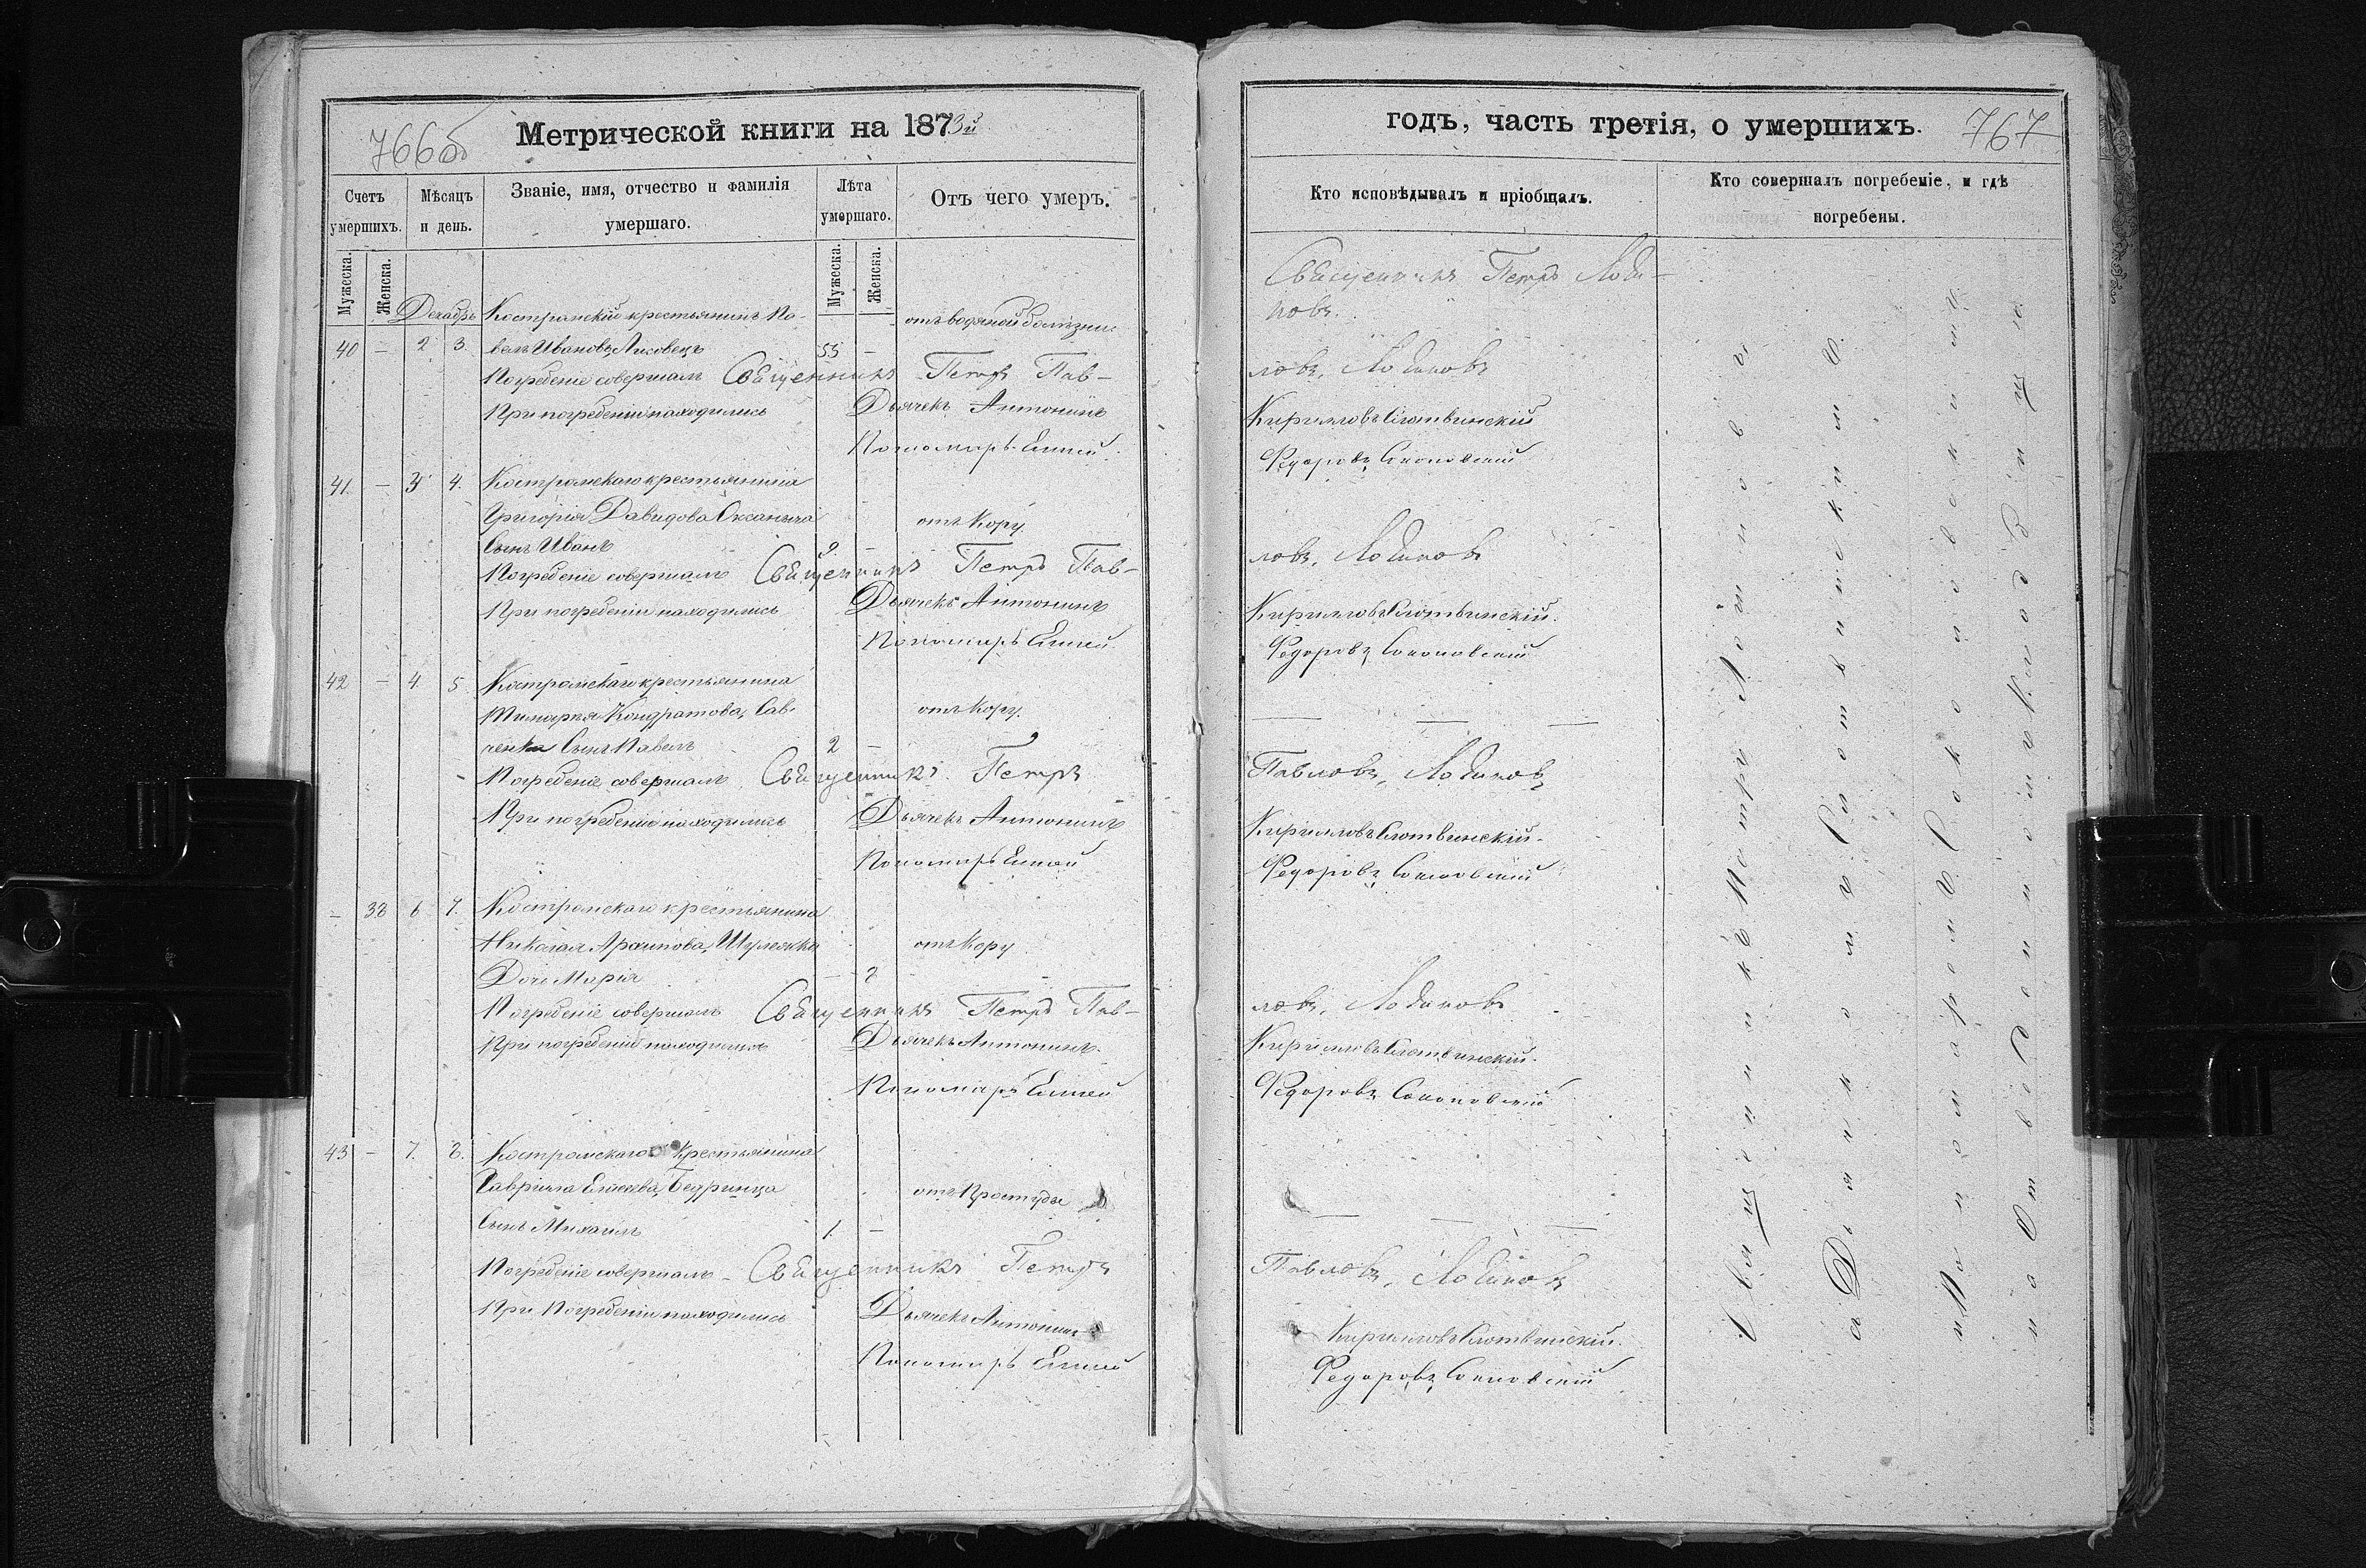 766об
Метрической книги на 1873й
Счетъ умершихъ.
Мѣсяцъ и день.
Званіе, имя, отчество и фамилія умершаго.
Лѣта умершаго.
Отъ чего умеръ.
Мужеска.
Женска.
Мужеска.
Женска.
Декабрь Костромскій крестьянинъ Па- отъ водяной болѣзни
40 — 2 3 велъ Ивановъ 55 —
Погребеніе совершалъ Священникъ Петръ Пав-
При погребеніи находились Дьячекъ Антонинъ
Пономарь Елисей
41. — 3 4. Костромскаго крестьянина
Григорія Давидова отъ Кору
Сынъ Иванъ 9. —
Погребеніе совершалъ Священникъ Петръ Пав-
При погребеніи находились Дьячекъ Антонинъ
Пономарь Елисей.
42 — 4. 5 Костромскаго крестьянина
Кондратова, Сав- отъ Кору.
ченка Сынъ Павелъ 2 —
Погребеніе совершалъ Священникъ Петръ
При погребеніи находились Дьячекъ Антонинъ
Пономарь Елисей
— 38 6 7. Костромскаго крестьянина
Николая Архипова, Шулежка отъ Кору
Дочь Марія — 2
Погребеніе совершалъ Священникъ Петръ Пав-
При погребеніи находились Дьячекъ Антонинъ.
Пономарь Елисей
43 — 7. 8. Костромскаго Крестьянина
Гавріила Елисеева, Бедринца отъ Простуды
Сынъ Михаилъ 1. —
Погребеніе совершалъ — Священникъ Петръ
При Погребеніи находились Дьячекъ Антонинъ
Пономарь Елисей
годъ, часть третія, о умершихъ.
767
Кто исповѣдывалъ и пріобщалъ.
Кто совершалъ погребеніе, и гдѣ погребены.
Священникъ Петръ Лоби-
новъ.
ловъ, Лобиновъ
Кирилловъ Слотвинскій
Федоровъ Соколовскій
ловъ, Лобиновъ
Кирилловъ Слотвинскій.
Федоровъ Соколовскій
— — —
Павловъ, Лобиновъ
Кирилловъ Слотвинскій.
Федоровъ Соколовскій
ловъ, Лобиновъ
Кирилловъ Слотвинскій.
Федоровъ Соколовскій
— — —
Павловъ, Лобиновъ
Кирилловъ Слотвинскій.
Федоровъ Соколовскій
Священникъ Петръ
Дьячокъ Слотвинскій
и Пономарь Соколовскій
на Отведенномъ Кладбищи